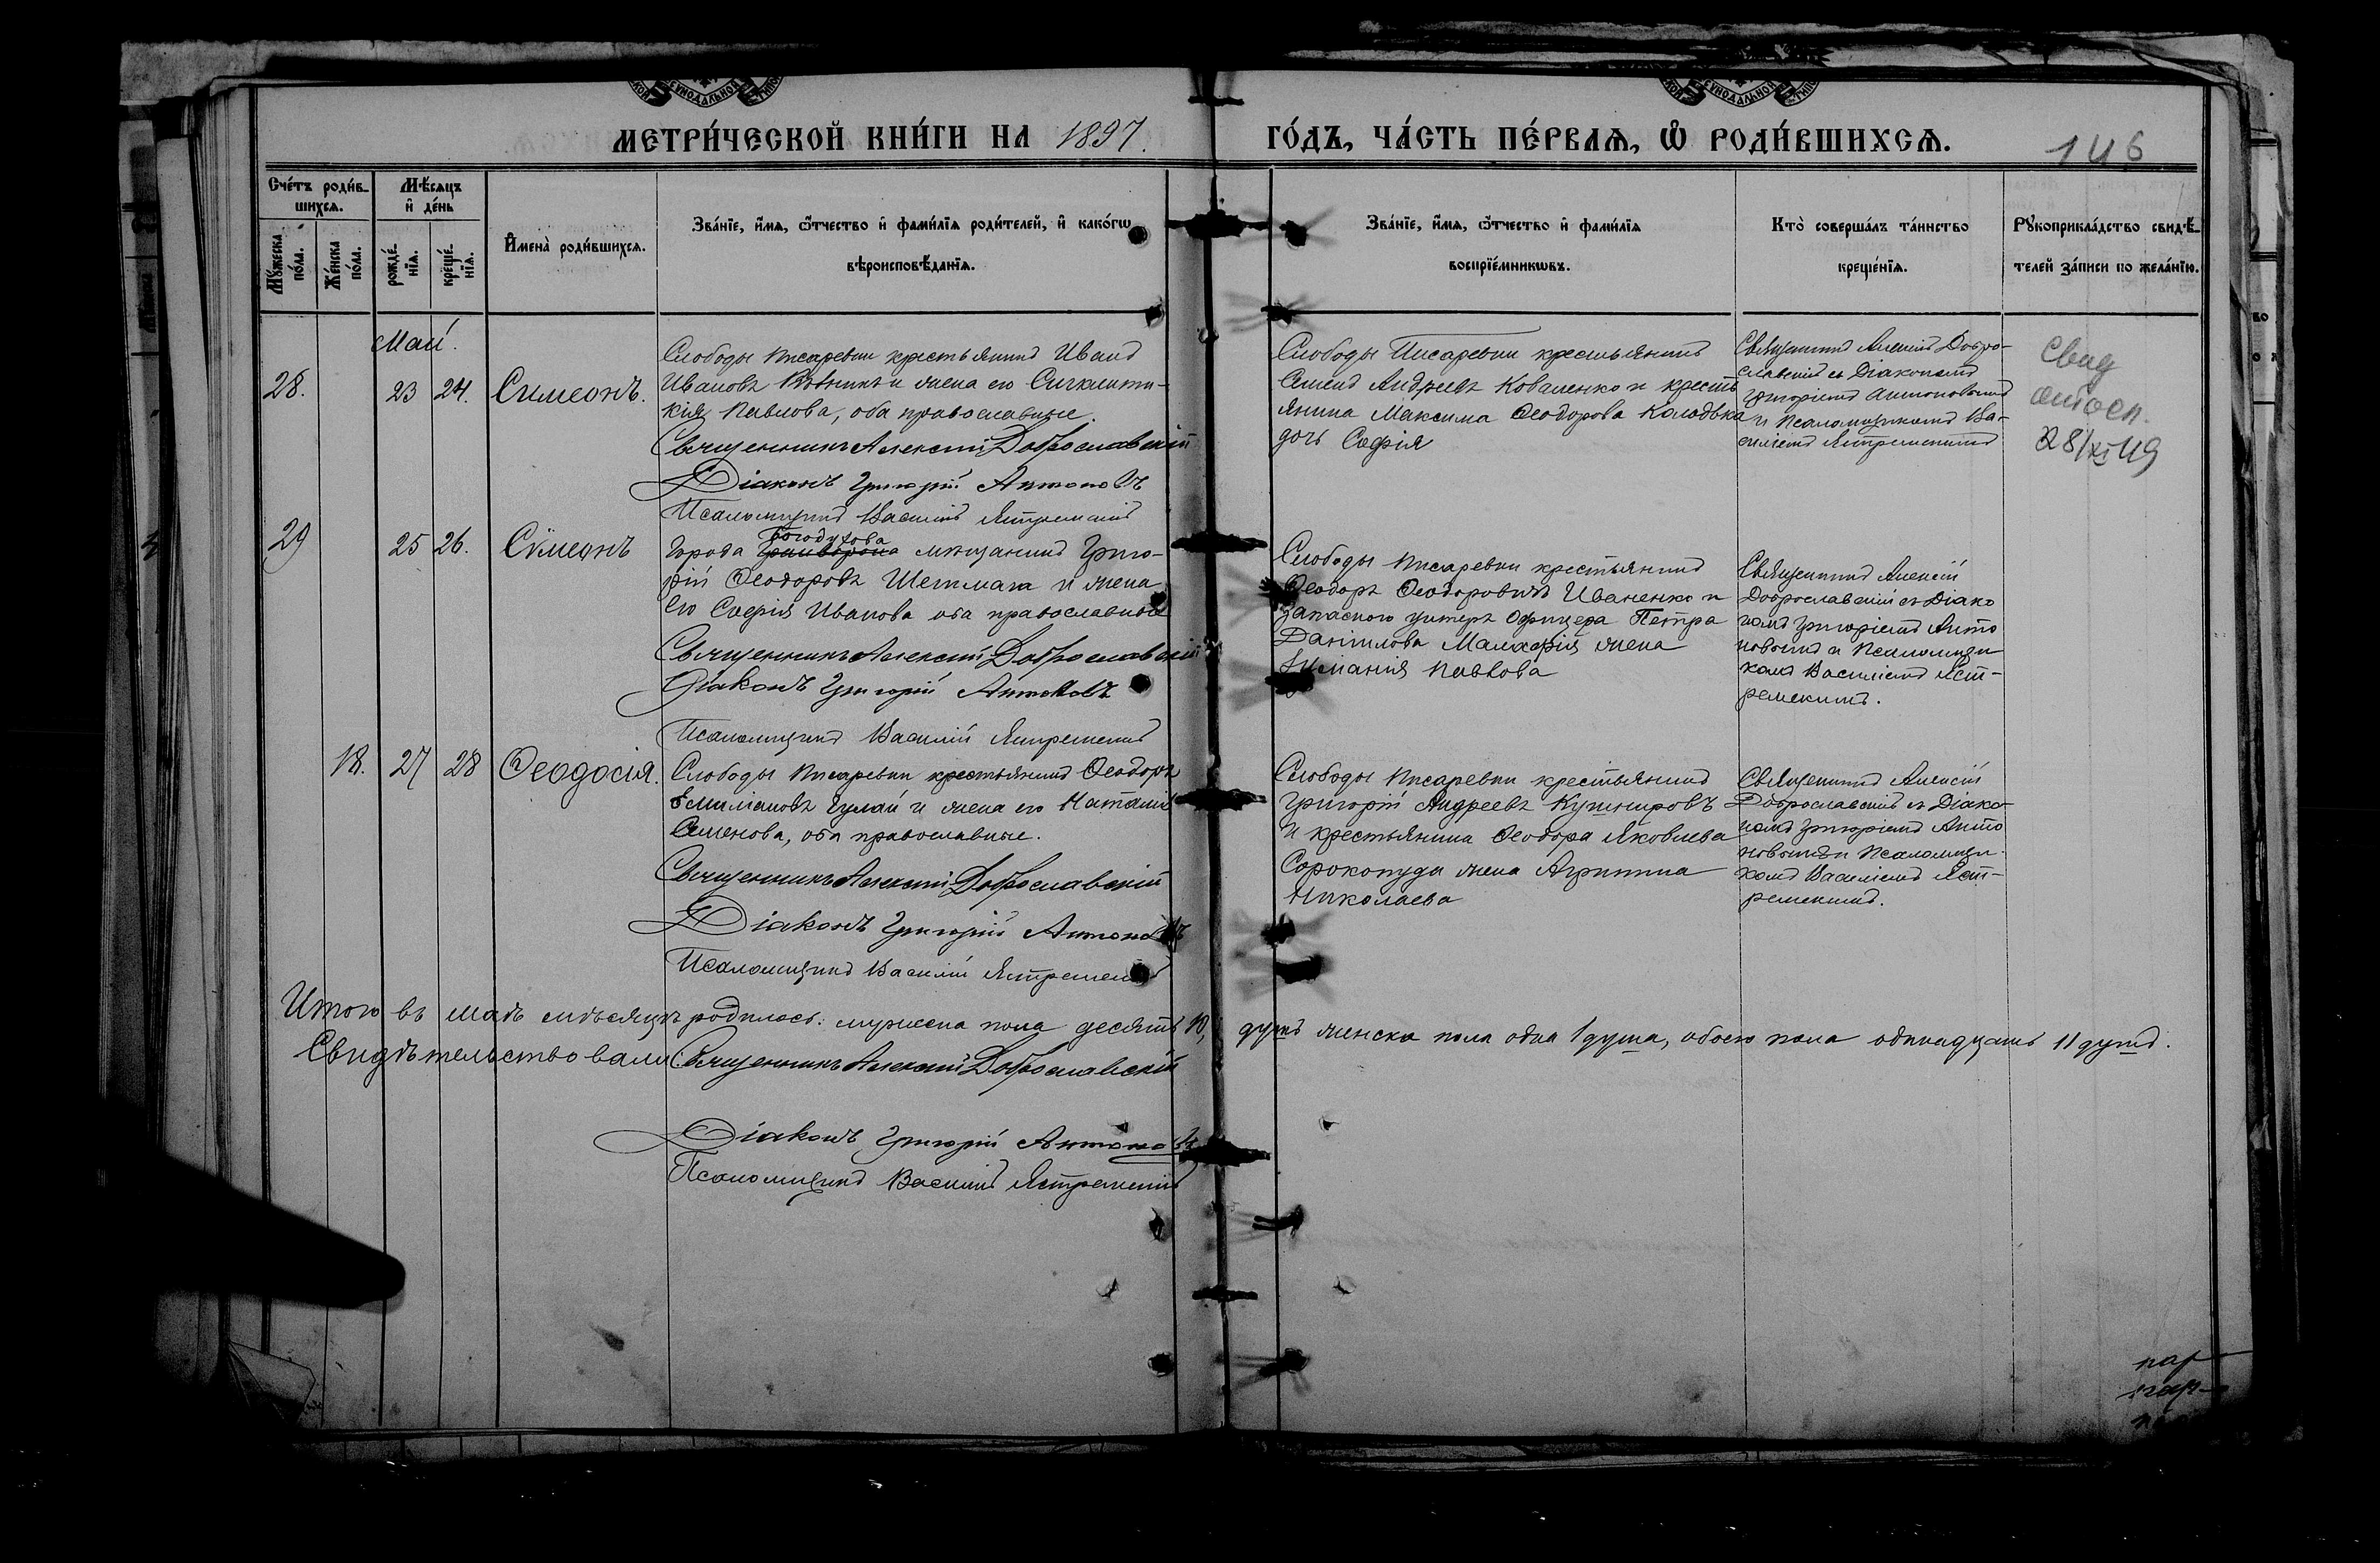 СУНОДАЛЬНОЙ
СУНОДАЛЬНОЙ
МЕТРИ́ЧЕСКОЙ КНИ́ГИ НА 1897.
ГО́ДЪ, ЧА́СТЬ ПЕ́РВАѦ, Ѡ҆ РОДИ́ВШИХСѦ.
146
Сче́тъ роди́в-
шихсѧ.
Мѣ́сѧцъ
и҆ де́нь
Мꙋ́жеска
по́ла.
Же́нска
по́ла.
рожде́-
нїѧ.
креще́-
нїѧ.
И҆мена̀ роди́вшихсѧ.
Зва́нїе, и҆́мѧ, ѻ҆́тчество и҆ фами́лїѧ роди́телей, и҆ како́гѡ
вѣроисповѣ́данїѧ.
Зва́нїе, и҆́мѧ, ѻ҆́тчество и҆ фами́лїѧ
воспрїе́мникѡвъ.
Кто̀ соверша́лъ та́инство
креще́нїѧ.
Рꙋкоприкла́дство свидѣ́-
телей за́писи по жела́нїю.
Май.
28.
23 24.
Симеонъ.
Слободы Писаревки крестьянинъ Иванъ
Ивановъ и жена его Синклити-
кія Павлова, оба православные.
Священникъ Алексій Доброславскій
Діаконъ Григорій Антоновъ
Псаломщикъ Василій Ястремскій
Слободы Писаревки крестьянинъ
Семенъ Андреевъ Коваленко и кресть
янина Максима Ѳеодорова Колодѣжа
дочь Софія
Священникъ Алексій Добро-
славскій съ Діакономъ
Григоріемъ Антоновымъ
и Псаломщикомъ Ва-
силіемъ Ястремскимъ
Свид
28/XI 49
29
25 26.
Сѵмеонъ
Богодухова
Города мѣщанинъ Григо-
рій Ѳеодоровъ Шетмага и жена
его Софія Иванова оба православные
Священникъ Алексій Доброславскій
Діаконъ Григорій Антоновъ
Псаломщикъ Василій Ястремскій
Слободы Писаревки крестьянинъ
Ѳеодоръ Ѳеодоровичъ Иваненко и
запасного унтеръ офицера Петра
Даніилова жена
Павлова
Священникъ Алексій
Доброславскій съ Діако
номъ Григоріемъ Анто
новымъ и Псаломщи
комъ Василіемъ Яст-
ремскимъ.
18.
27 28
Ѳеодосія.
Слободы Писаревки крестьянинъ Ѳеодоръ
Емиліановъ Гулай и жена его Наталія
Семенова, оба православные.
Священникъ Алексій Доброславскій
Діаконъ Григорій Антоновъ
Псаломщикъ Василій Ястремскій
Слободы Писаревки крестьянинъ
Григорій Андреевъ Кушнировъ
и крестьянина Ѳеодора Яковлева
Сорокопуда жена Агрипина
Николаева
Священникъ Алексій
Доброславскій съ Діако-
номъ Григоріемъ Анто
новымъ и Псаломщи-
комъ Василіемъ Яст-
ремскимъ.
Итого въ маѣ мѣсяцѣ родилось: мужеска пола десять 10, душъ женска пола одна 1 душа, обоего пола одинадцать 11 душъ.
Свидѣтельствовали: Священникъ Алексій Доброславскій
Діаконъ Григорій Антоновъ
Псаломщикъ Василій Ястремскій